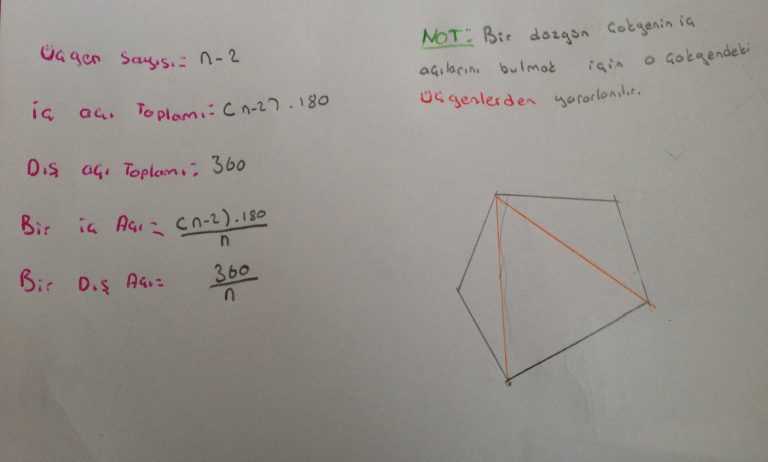 Üçgen Sayısı: n-2
İç açı Toplamı: (n-2).180
Dış açı Toplamı: 360
Bir iç Açı = (n-2).180 / n
Bir Dış Açı = 360 / n
NOT: Bir düzgün çokgenin iç
açılarını bulmak için o çokgendeki
Üçgenlerden yararlanılır.